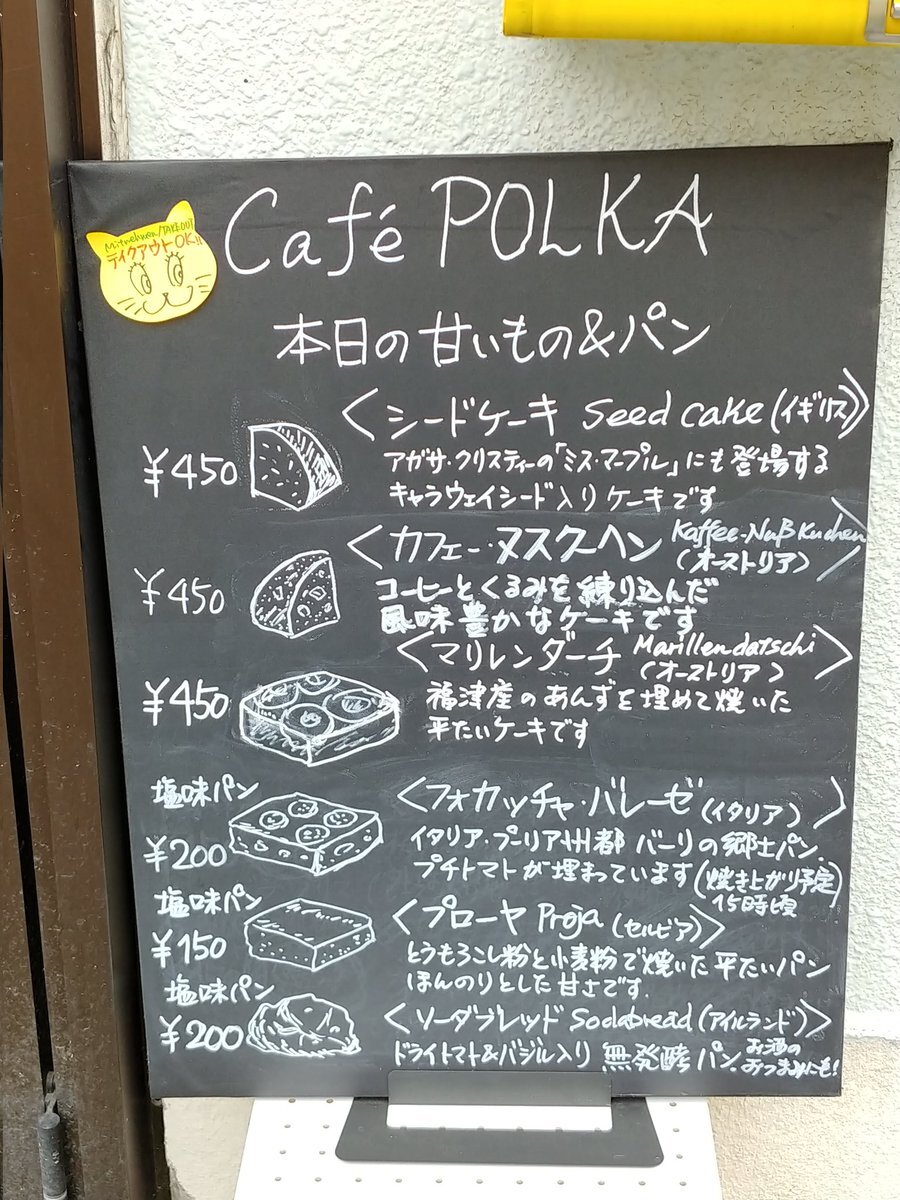 Café POLKA
Mitnehmen/TAKEOUT
テイクアウトOK!!
本日の甘いもの&パン
<シードケーキ Seed cake (イギリス)>
¥450
アガサ・クリスティーの「ミス・マープル」にも登場する
キャラウェイシード入りケーキです
<カフェー・ヌスクーヘン Kaffee-Nuß Kuchen
(オーストリア)>
¥450
コーヒーとくるみを練り込んだ
風味豊かなケーキです
<マリレンダーチ Marillendatschi
(オーストリア)>
¥450
福津産のあんずを埋めて焼いた
平たいケーキです
塩味パン
<フォカッチャ・バレーゼ (イタリア)>
¥200
イタリア・プーリア州都 バーリの郷土パン.
プチトマトが埋まっています (焼き上がり予定
15時頃)
塩味パン
<プローヤ Proja (セルビア)>
¥150
とうもろこし粉と小麦粉で焼いた平たいパン
ほんのりとした甘さです.
塩味パン
<ソーダブレッド Sodabread (アイルランド)>
¥200
ドライトマト&バジル入り 無発酵パン. お酒の
おつまみにも!